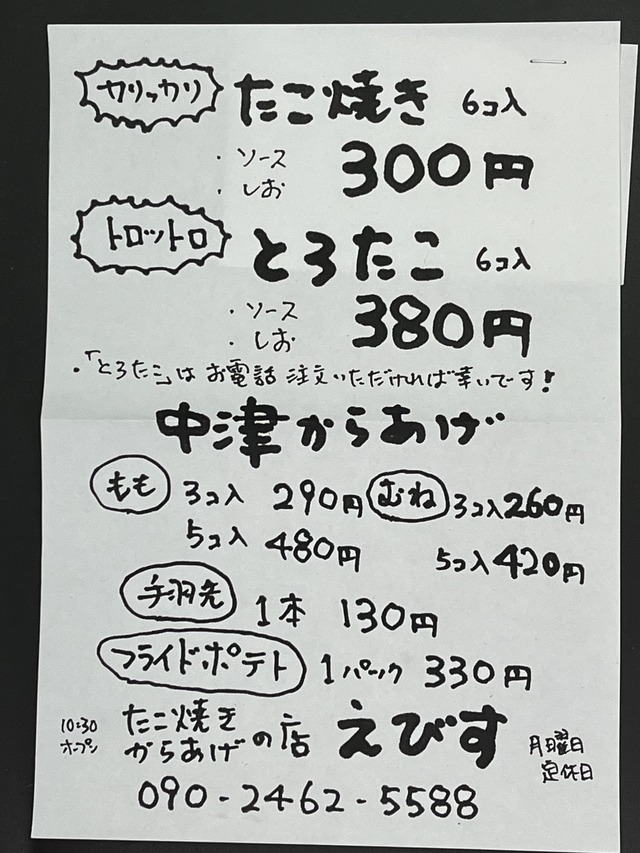 カリッカリ たこ焼き 6コ入
・ソース
・しお 300円
トロットロ とろたこ 6コ入
・ソース
・しお 380円
・「とろたこ」はお電話注文いただければ幸いです!
中津からあげ
もも 3コ入 290円 むね 3コ入 260円
5コ入 480円 5コ入 420円
手羽先 1本 130円
フライドポテト 1パック 330円
10:30 オープン
たこ焼き
からあげの店 えびす
月曜日
定休日
090-2462-5588